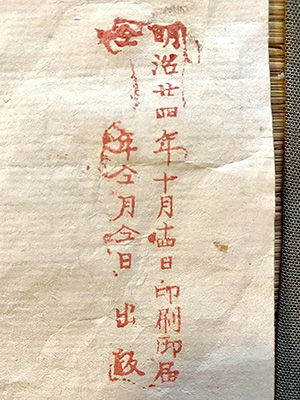 明治廿四年十月十四日印刷御届
年仝月仝日 出版